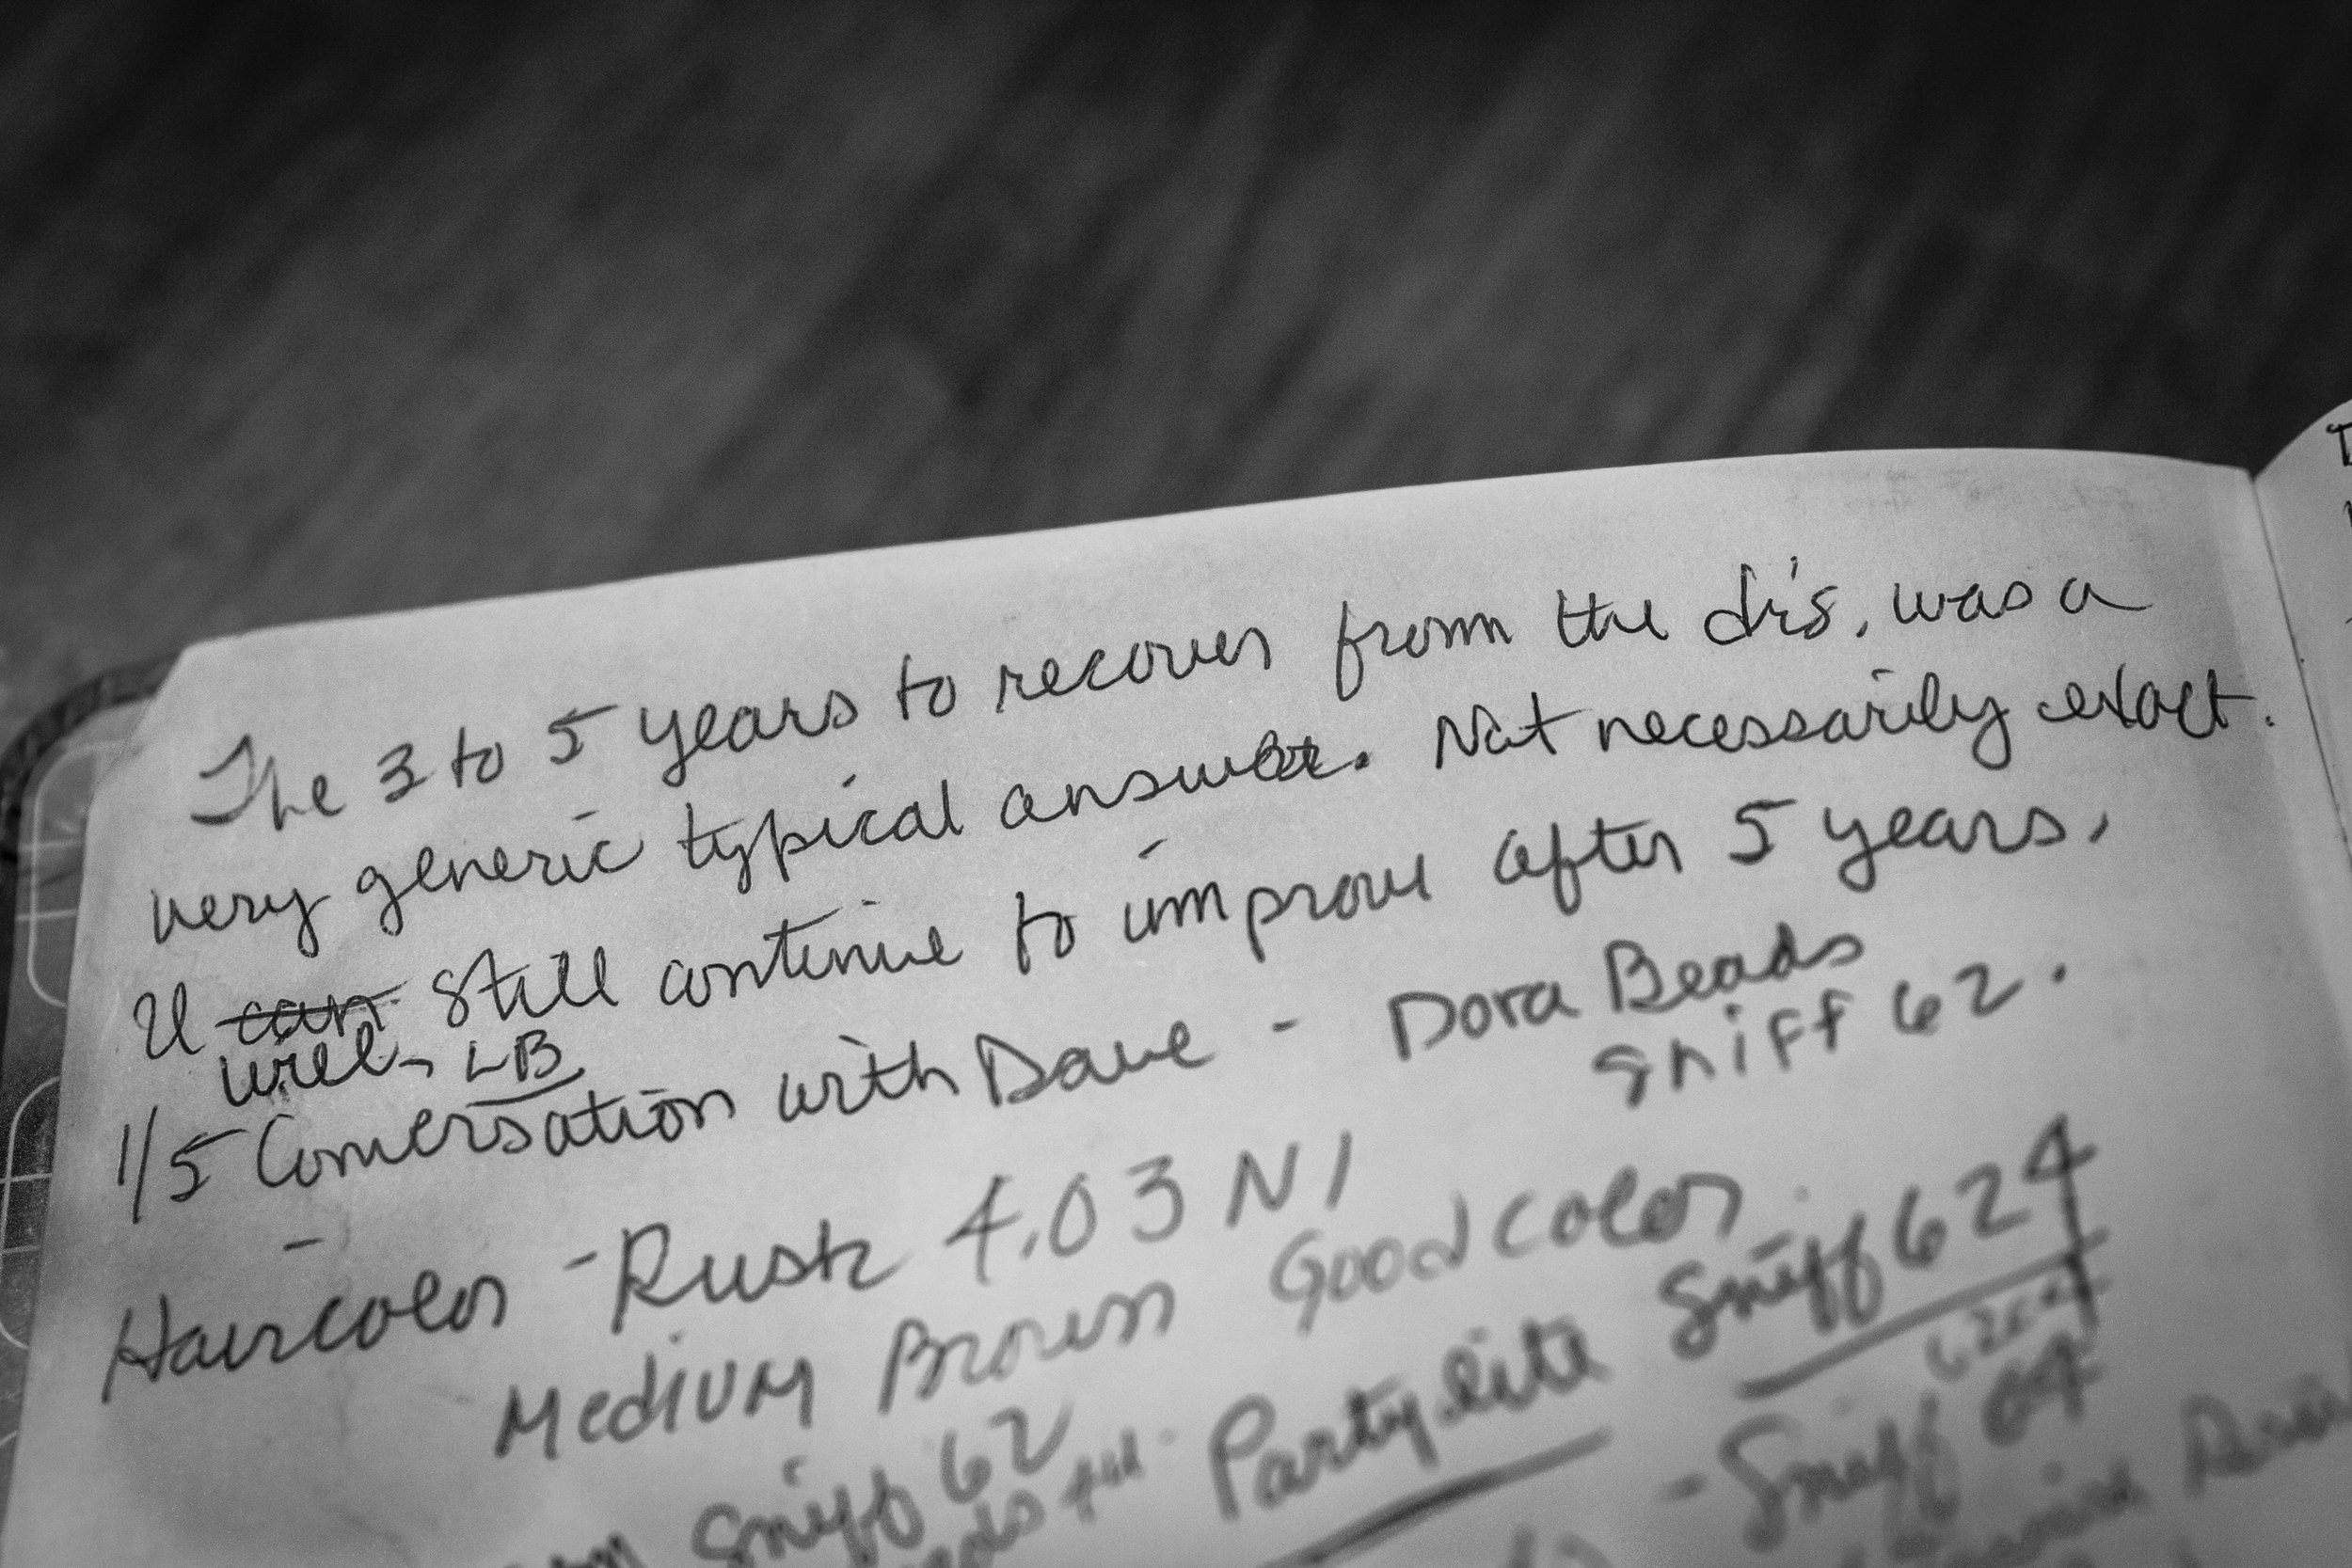 The 3 to 5 years to recover from the dr's, was a
very generic typical answer. Not necessarily exact.
U can still continue to improve after 5 years.
will LB
1/5 Conversation with Dave - Dora Beads
sniff 62.
Haircolor - Rusk 4.03 N1
Medium Brown Good color
Sniff 62
Partylite Sniff 624
- Sniff 64